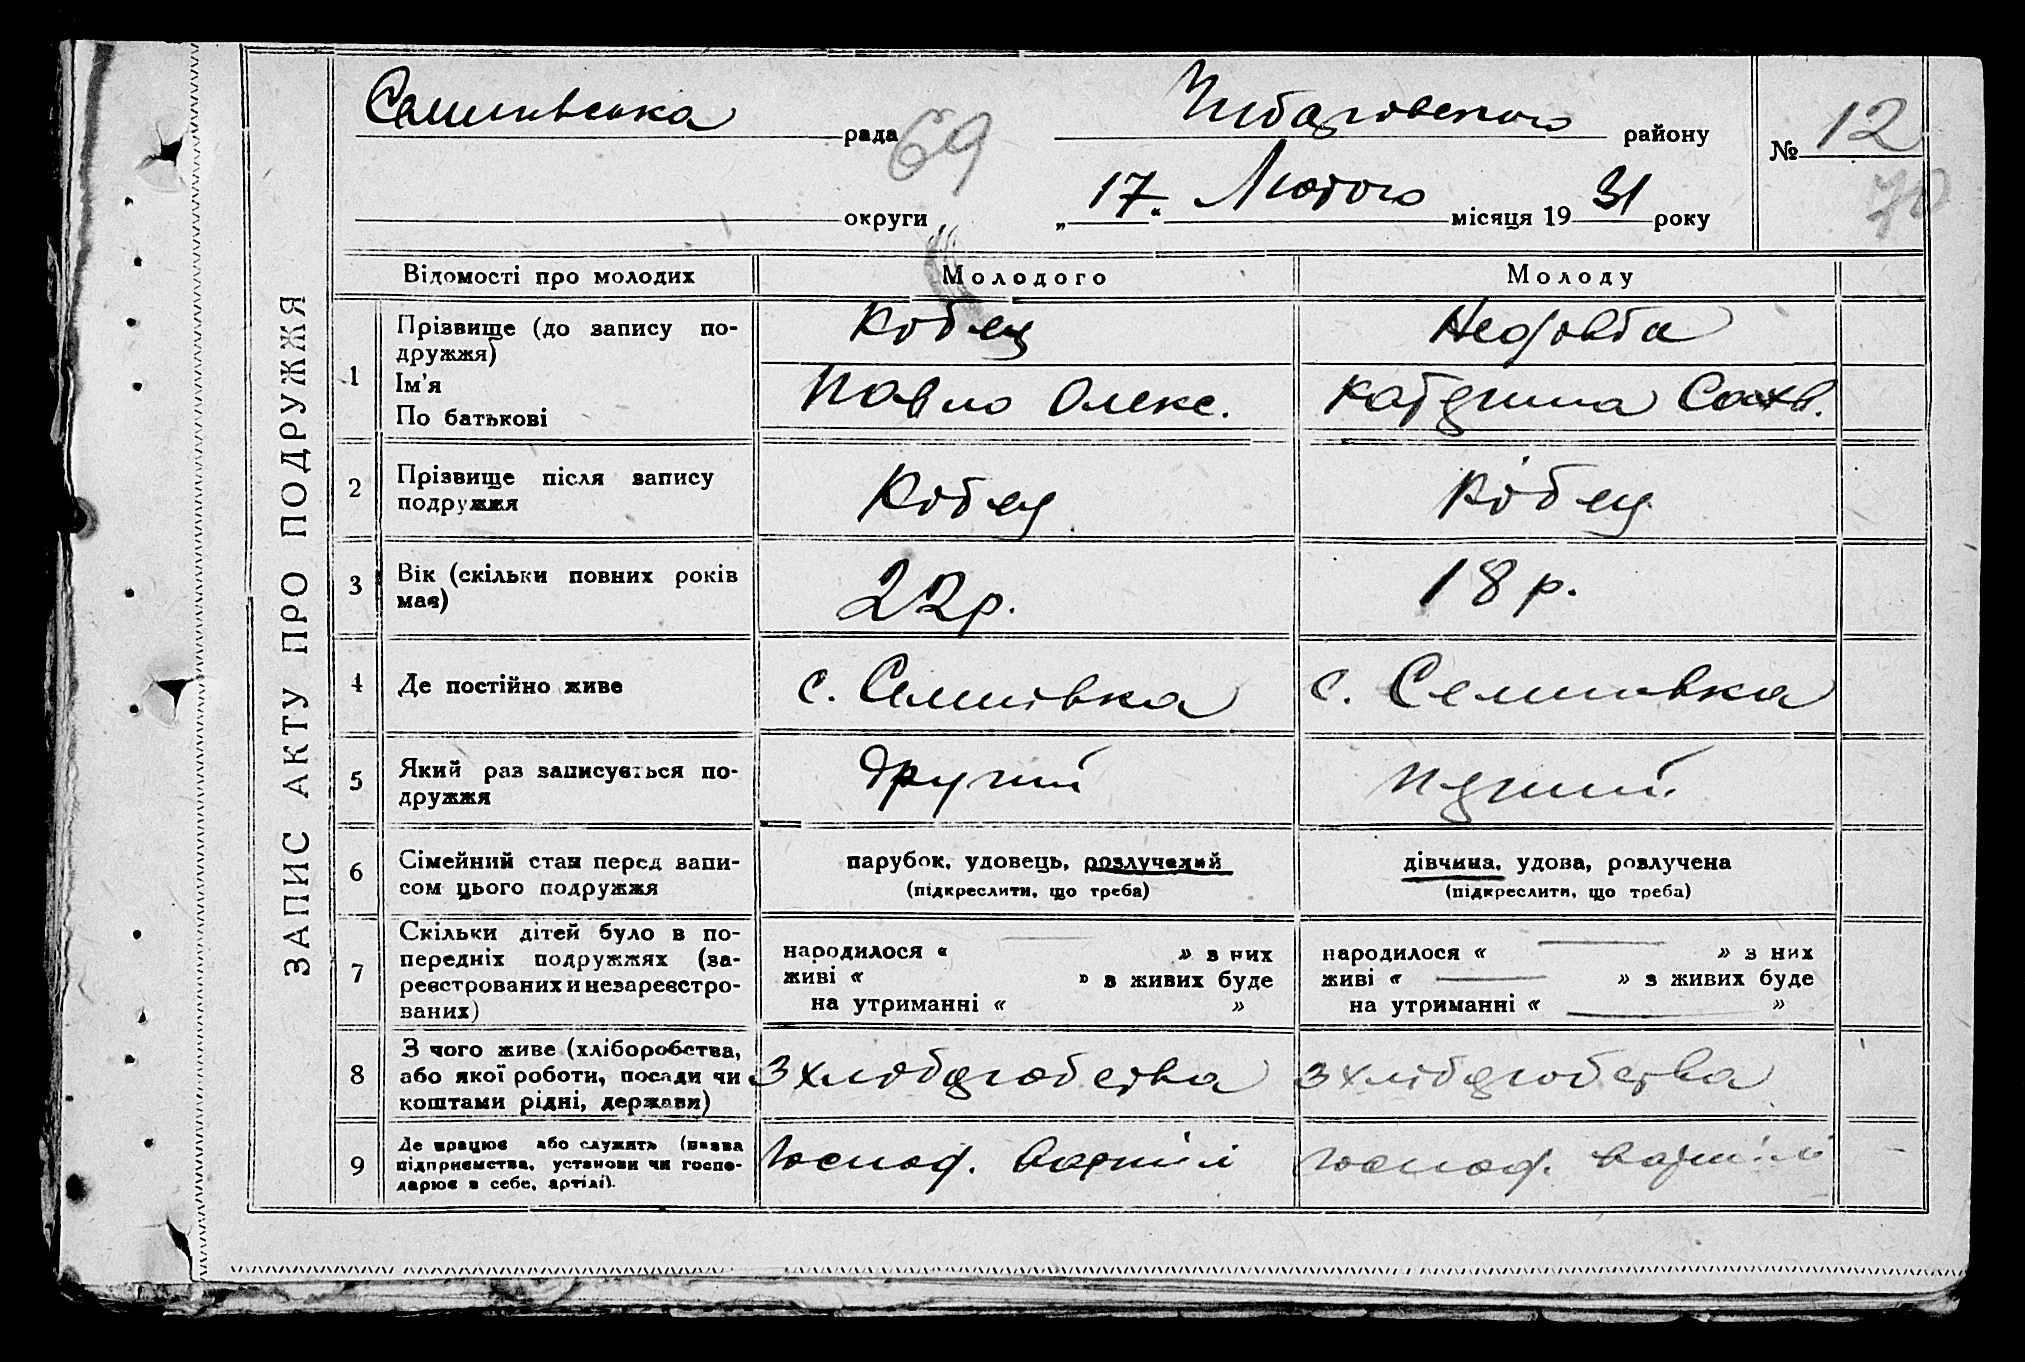 ЗАПИС АКТУ ПРО ПОДРУЖЖЯ
Семинівська рада 69 району № 12
70
округи „17“ Лютого місяця 1931 року
Відомості про молодих Молодого Молоду
1 Прізвище (до запису по-
дружжя) Кобец
Ім'я Павло Олекс. Катерина Сахв.
По батькові
2 Прізвище після запису
подружжя Кобец Кобец
3 Вік (скільки повних років
має) 22 р. 18 р.
4 Де постійно живе с. Семинівка с. Семинівка
5 Який раз записується по-
дружжя другий перший
6 Сімейний стан перед запи-
сом цього подружжя парубок, удовець, розлучений дівчина, удова, розлучена
(підкреслити, що треба) (підкреслити, що треба)
7 Скільки дітей було в по-
передніх подружжях (за-
реєстрованих и незареєстро-
ваних) народилося « » з них народилося « » з них
живі « » з живих буде живі « » з живих буде
на утриманні « » на утриманні « »
8 З чого живе (хліборобства,
або якої роботи, посади чи
коштами рідні, держави) З хліборобства З хліборобства
9 Де працює або служить (назва
підприємства, установи чи госпо-
дарює в себе, артілі). Господ. в артілі Господ. в артілі